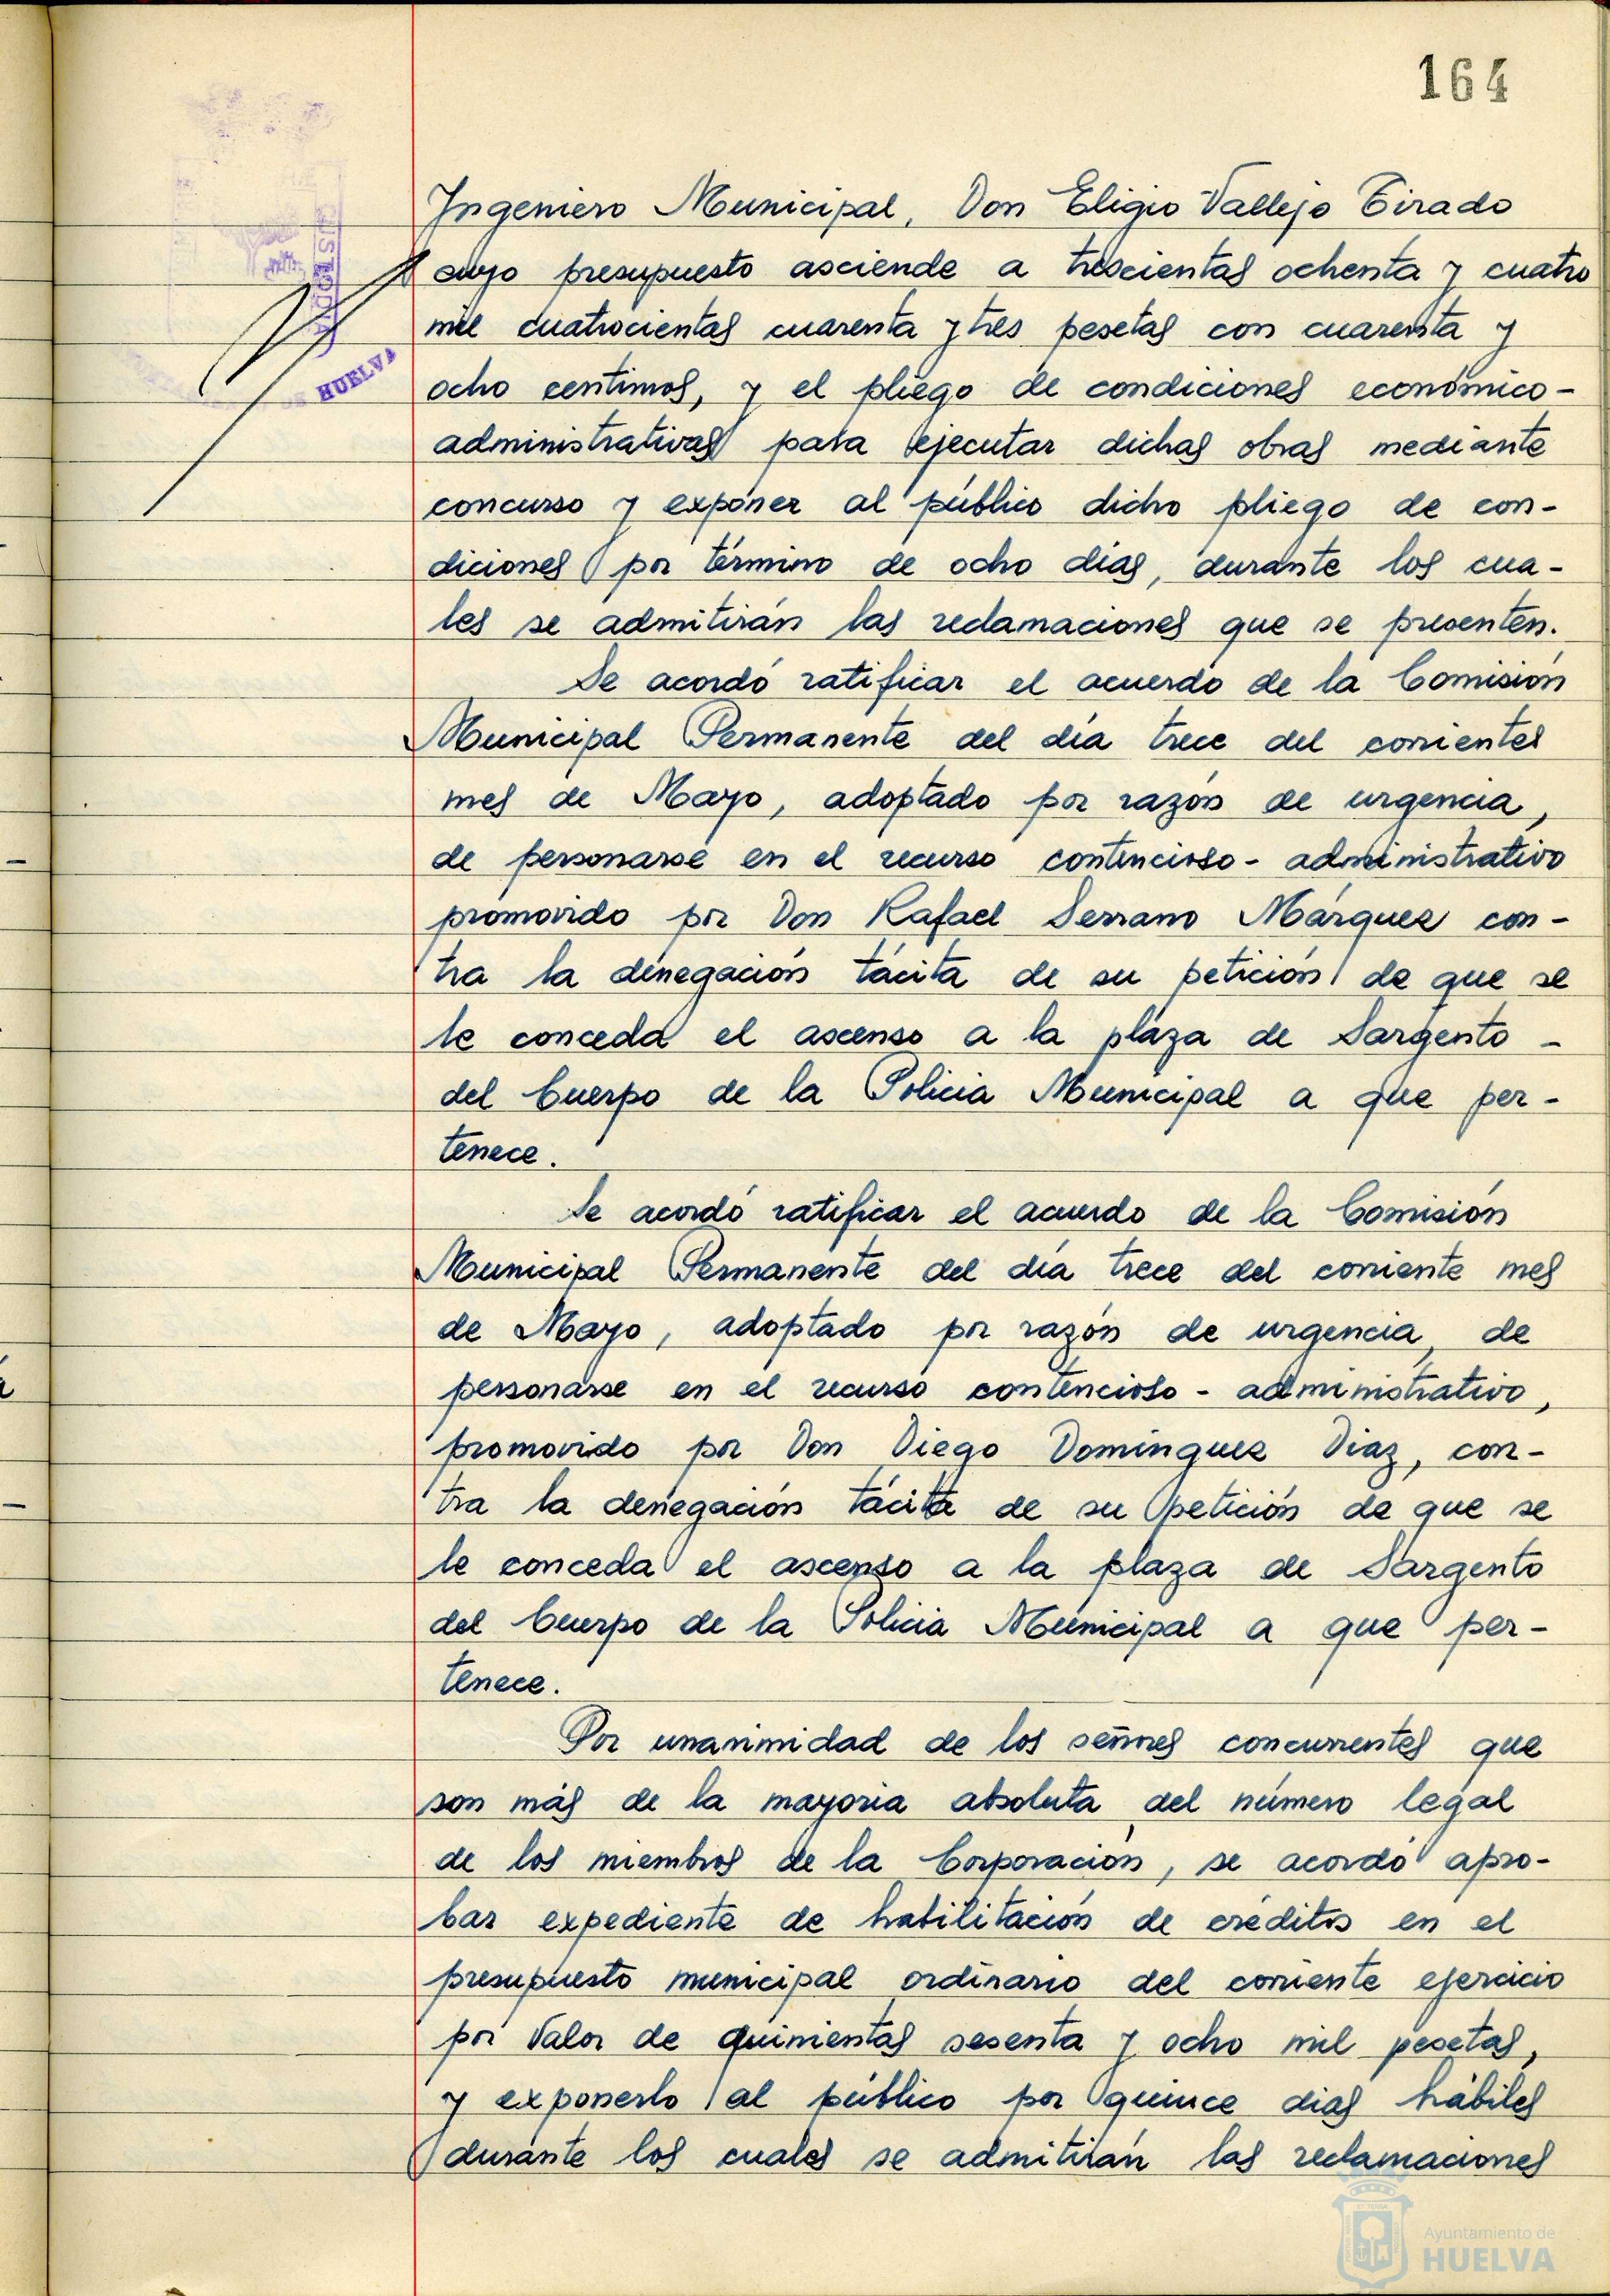 164
Ingeniero Municipal, Don Eligio Vallejo Tirado
cuyo presupuesto asciende a trescientas ochenta y cuatro
mil cuatrocientas cuarenta y tres pesetas con cuarenta y
ocho centimos, y el pliego de condiciones económico-
administrativas para ejecutar dichas obras mediante
concurso y exponer al público dicho pliego de con-
diciones por término de ocho días, durante los cua-
les se admitirán las reclamaciones que se presenten.
Se acordó ratificar el acuerdo de la Comisión
Municipal Permanente del día trece del corrientes
mes de Mayo, adoptado por razón de urgencia,
de personarse en el recurso contencioso-administrativo
promovido por Don Rafael Serrano Márquez con-
tra la denegación tácita de su petición de que se
le conceda el ascenso a la plaza de Sargento -
del Cuerpo de la Policia Municipal a que per-
tenece.
Se acordó ratificar el acuerdo de la Comisión
Municipal Permanente del día trece del corriente mes
de Mayo, adoptado por razón de urgencia, de
personarse en el recurso contencioso-administrativo,
promovido por Don Diego Domínguez Diaz, con-
tra la denegación tácita de su petición de que se
le conceda el ascenso a la plaza de Sargento
del Cuerpo de la Policia Municipal a que per-
tenece.
Por unanimidad de los señores concurrentes que
son más de la mayoria absoluta del número legal
de los miembros de la Corporación, se acordó apro-
bar expediente de habilitación de créditos en el
presupuesto municipal ordinario del corriente ejercicio
por valor de quinientas sesenta y ocho mil pesetas,
y exponerlo al público por quince dias hábiles
durante los cuales se admitirán las reclamaciones
CUSTODIA
DE HUELVA
Ayuntamiento de
HUELVA